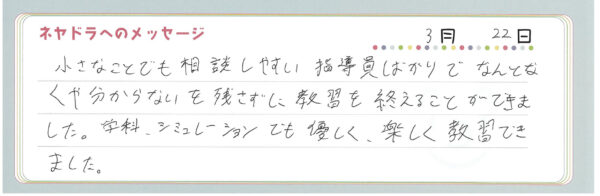 ネヤドラへのメッセージ 3月 22日
小さなことでも相談しやすい指導員ばかりでなんとな
くや分からないを残さずに教習を終えることができま
した。学科、シミュレーションでも優しく、楽しく教習でき
ました。